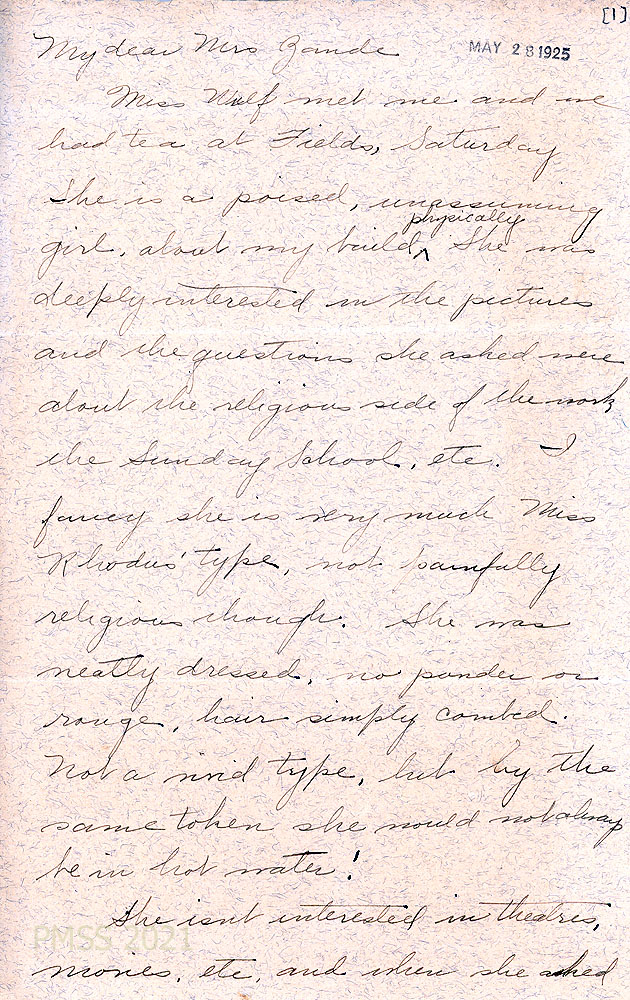 [1]
My dear Mrs Zande
MAY 28 1925
Miss Wolf met me and we
had tea at Fields, Saturday
She is a poised, unassuming
physically
girl, about my build, ^ She was
deeply interested in the pictures
and the questions she asked were
about the religious side of the work
the Sunday School, etc. I
fancy she is very much Miss
Rhodus' type, not painfully
religious though. She was
neatly dressed, no powder or
rouge, hair simply combed.
Not a vivid type, but by the
same token she would not always
be in hot water!
She isnt interested in theatres,
PMSS 2021
movies, etc, and when she asked